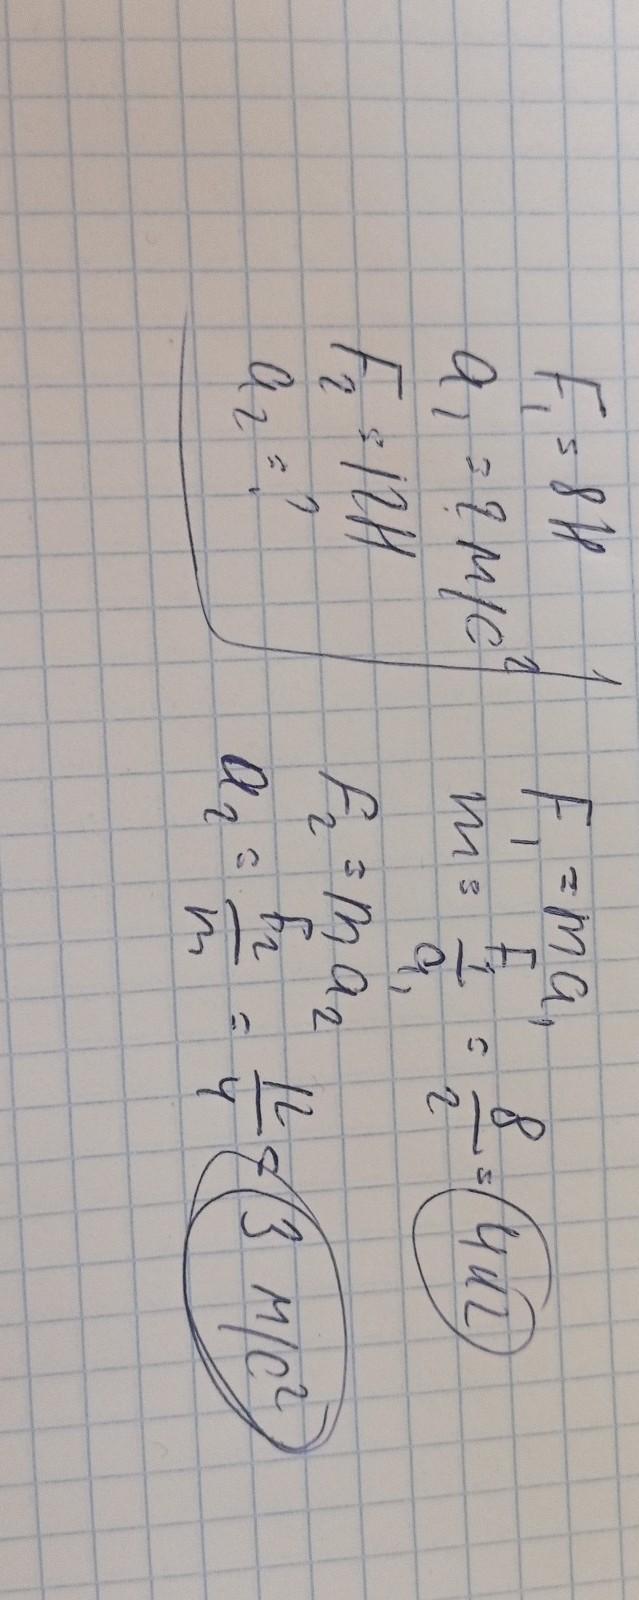 F₁ = 8Н
a₁ = 2 м/с²
F₂ = 12Н
a₂ = ?
F₁ = ma₁
m = F₁/a₁ = 8/2 = 4 кг
F₂ = ma₂
a₂ = F₂/m = 12/4 = 3 м/с²